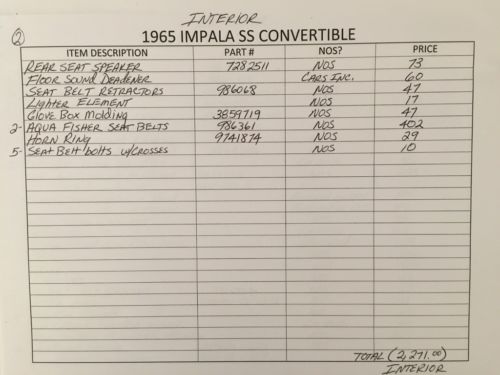 INTERIOR
2
1965 IMPALA SS CONVERTIBLE
ITEM DESCRIPTION PART # NOS? PRICE
REAR SEAT SPEAKER 7282511 NOS 73
FLOOR SOUND DEADENER CARS INC. 60
SEAT BELT RETRACTORS 986068 NOS 47
LIGHTER ELEMENT NOS 17
Glove Box Molding 3859719 NOS 47
2- AQUA FISHER SEAT BELTS 986361 NOS 402
HORN RING 9741874 NOS 29
5- SEAT BELT bolts w/CROSSES NOS 10
TOTAL (2,271.00)
INTERIOR